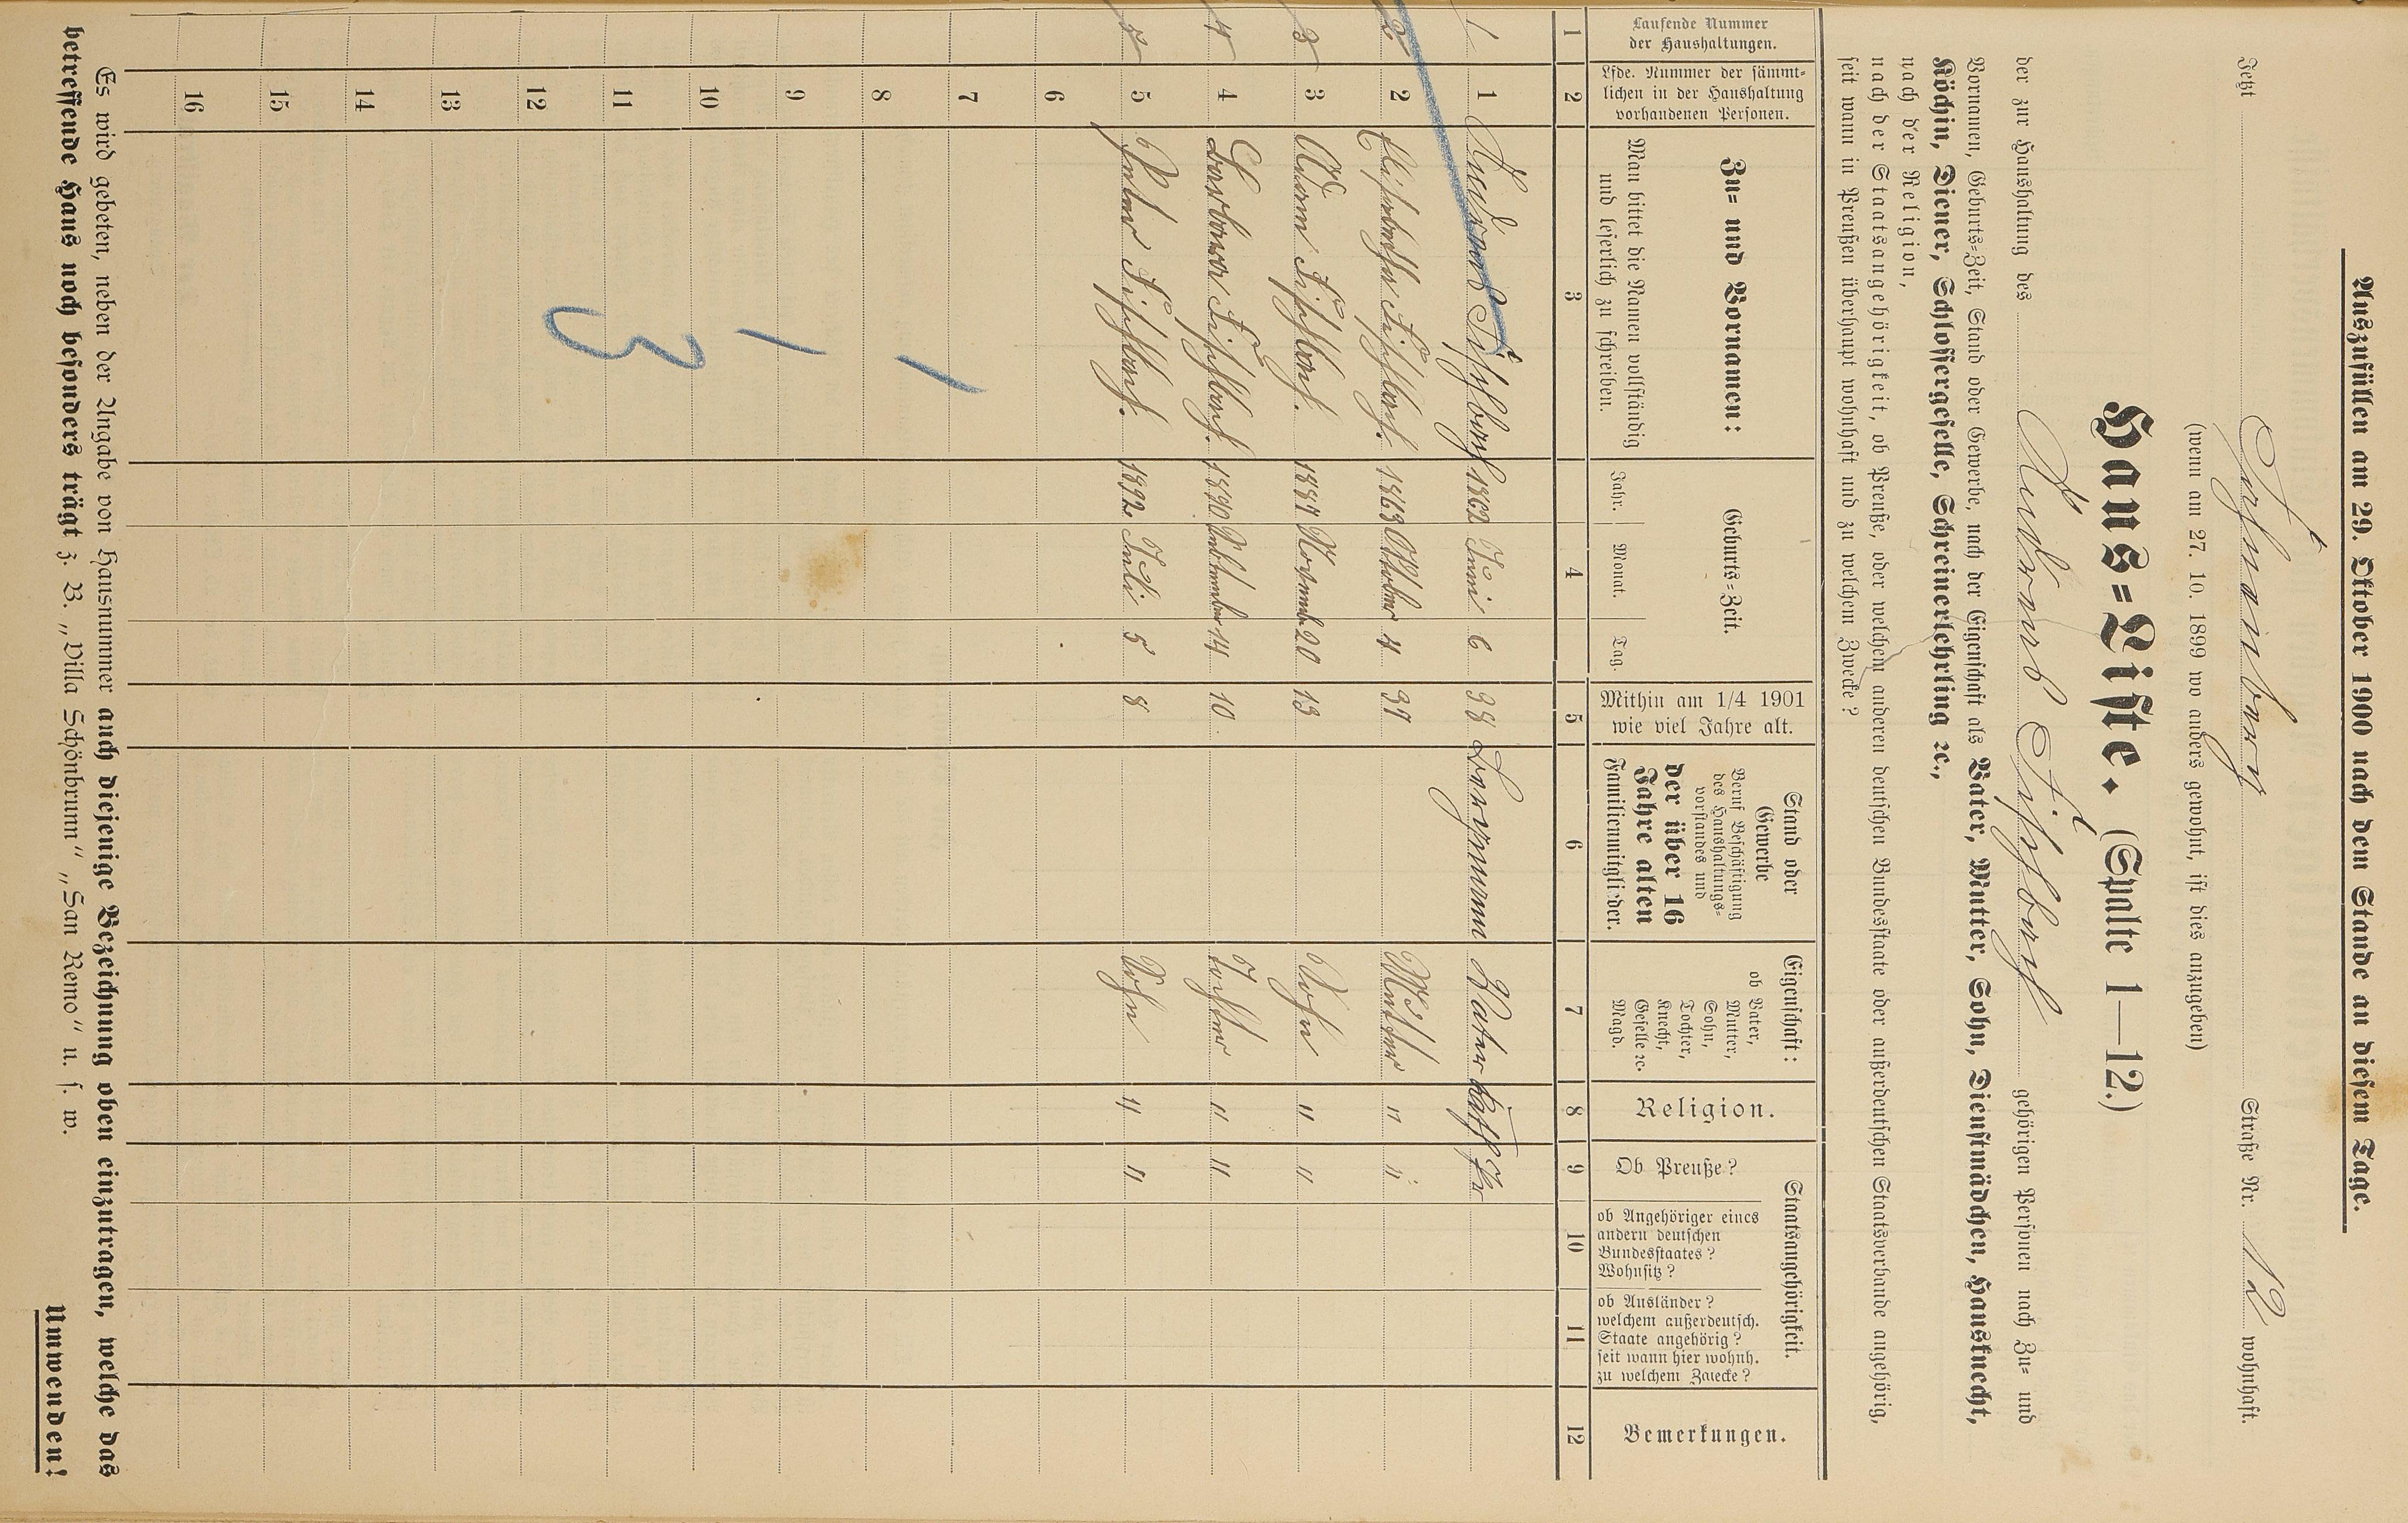 Auszufüllen am 29. Oktober 1900 nach dem Stande an diesem Tage.
Jetzt Straße Nr. 12 wohnhaft.
(wenn am 27. 10. 1899 wo anders gewohnt, ist dies anzugeben)
Haus=Liste. (Spalte 1—12.)
der zur Haushaltung des Andreas Fischbach gehörigen Personen nach Zu= und
Vornamen, Geburts=Zeit, Stand oder Gewerbe, nach der Eigenschaft als Vater, Mutter, Sohn, Dienstmädchen, Hausknecht,
Köchin, Diener, Schlossergeselle, Schreinerlehrling ꝛc.,
nach der Religion,
nach der Staatsangehörigkeit, ob Preuße, oder welchem anderen deutschen Bundesstaate oder außerdeutschen Staatsverbande angehörig,
seit wann in Preußen überhaupt wohnhaft und zu welchem Zwecke?
Laufende Nummer
der Haushaltungen.
Lfde. Nummer der sämmt=
lichen in der Haushaltung
vorhandenen Personen.
Zu= und Vornamen:
Man bittet die Namen vollständig
und leserlich zu schreiben.
Geburts=Zeit.
Jahr. Monat. Tag.
Mithin am 1/4 1901
wie viel Jahre alt.
Stand oder
Gewerbe
Beruf Beschäftigung
des Haushaltungs=
vorstandes und
der über 16
Jahre alten
Familienmitglieder.
Eigenschaft:
ob Vater,
Mutter,
Sohn,
Tochter,
Knecht,
Geselle ꝛc.
Magd.
Religion.
Staatsangehörigkeit.
Ob Preuße?
ob Angehöriger eines
andern deutschen
Bundesstaates?
Wohnsitz?
ob Ausländer?
welchem außerdeutsch.
Staate angehörig?
seit wann hier wohnh.
zu welchem Zwecke?
Bemerkungen.
1 2 3 4 5 6 7 8 9 10 11 12
1 1 Andreas Fischbach 1862 Juni 6 38 Bergmann Vater kath Ja
2 2 Elisabetha Fischbach. 1863 Oktober 4 37 Mutter " "
3 3 Adam Fischbach. 1887 November 20 13 Sohn " "
4 4 Barbara Fischbach. 1890 September 14 10 Tochter " "
5 5 Peter Fischbach. 1892 Juli 5 8 Sohn " "
6
7
8
9
10
11
12
13
14
15
16
1
1
3
Es wird gebeten, neben der Angabe von Hausnummer auch diejenige Bezeichnung oben einzutragen, welche das
betreffende Haus noch besonders trägt z. B. „Villa Schönbrunn" „San Remo" u. s. w.
Umwenden!